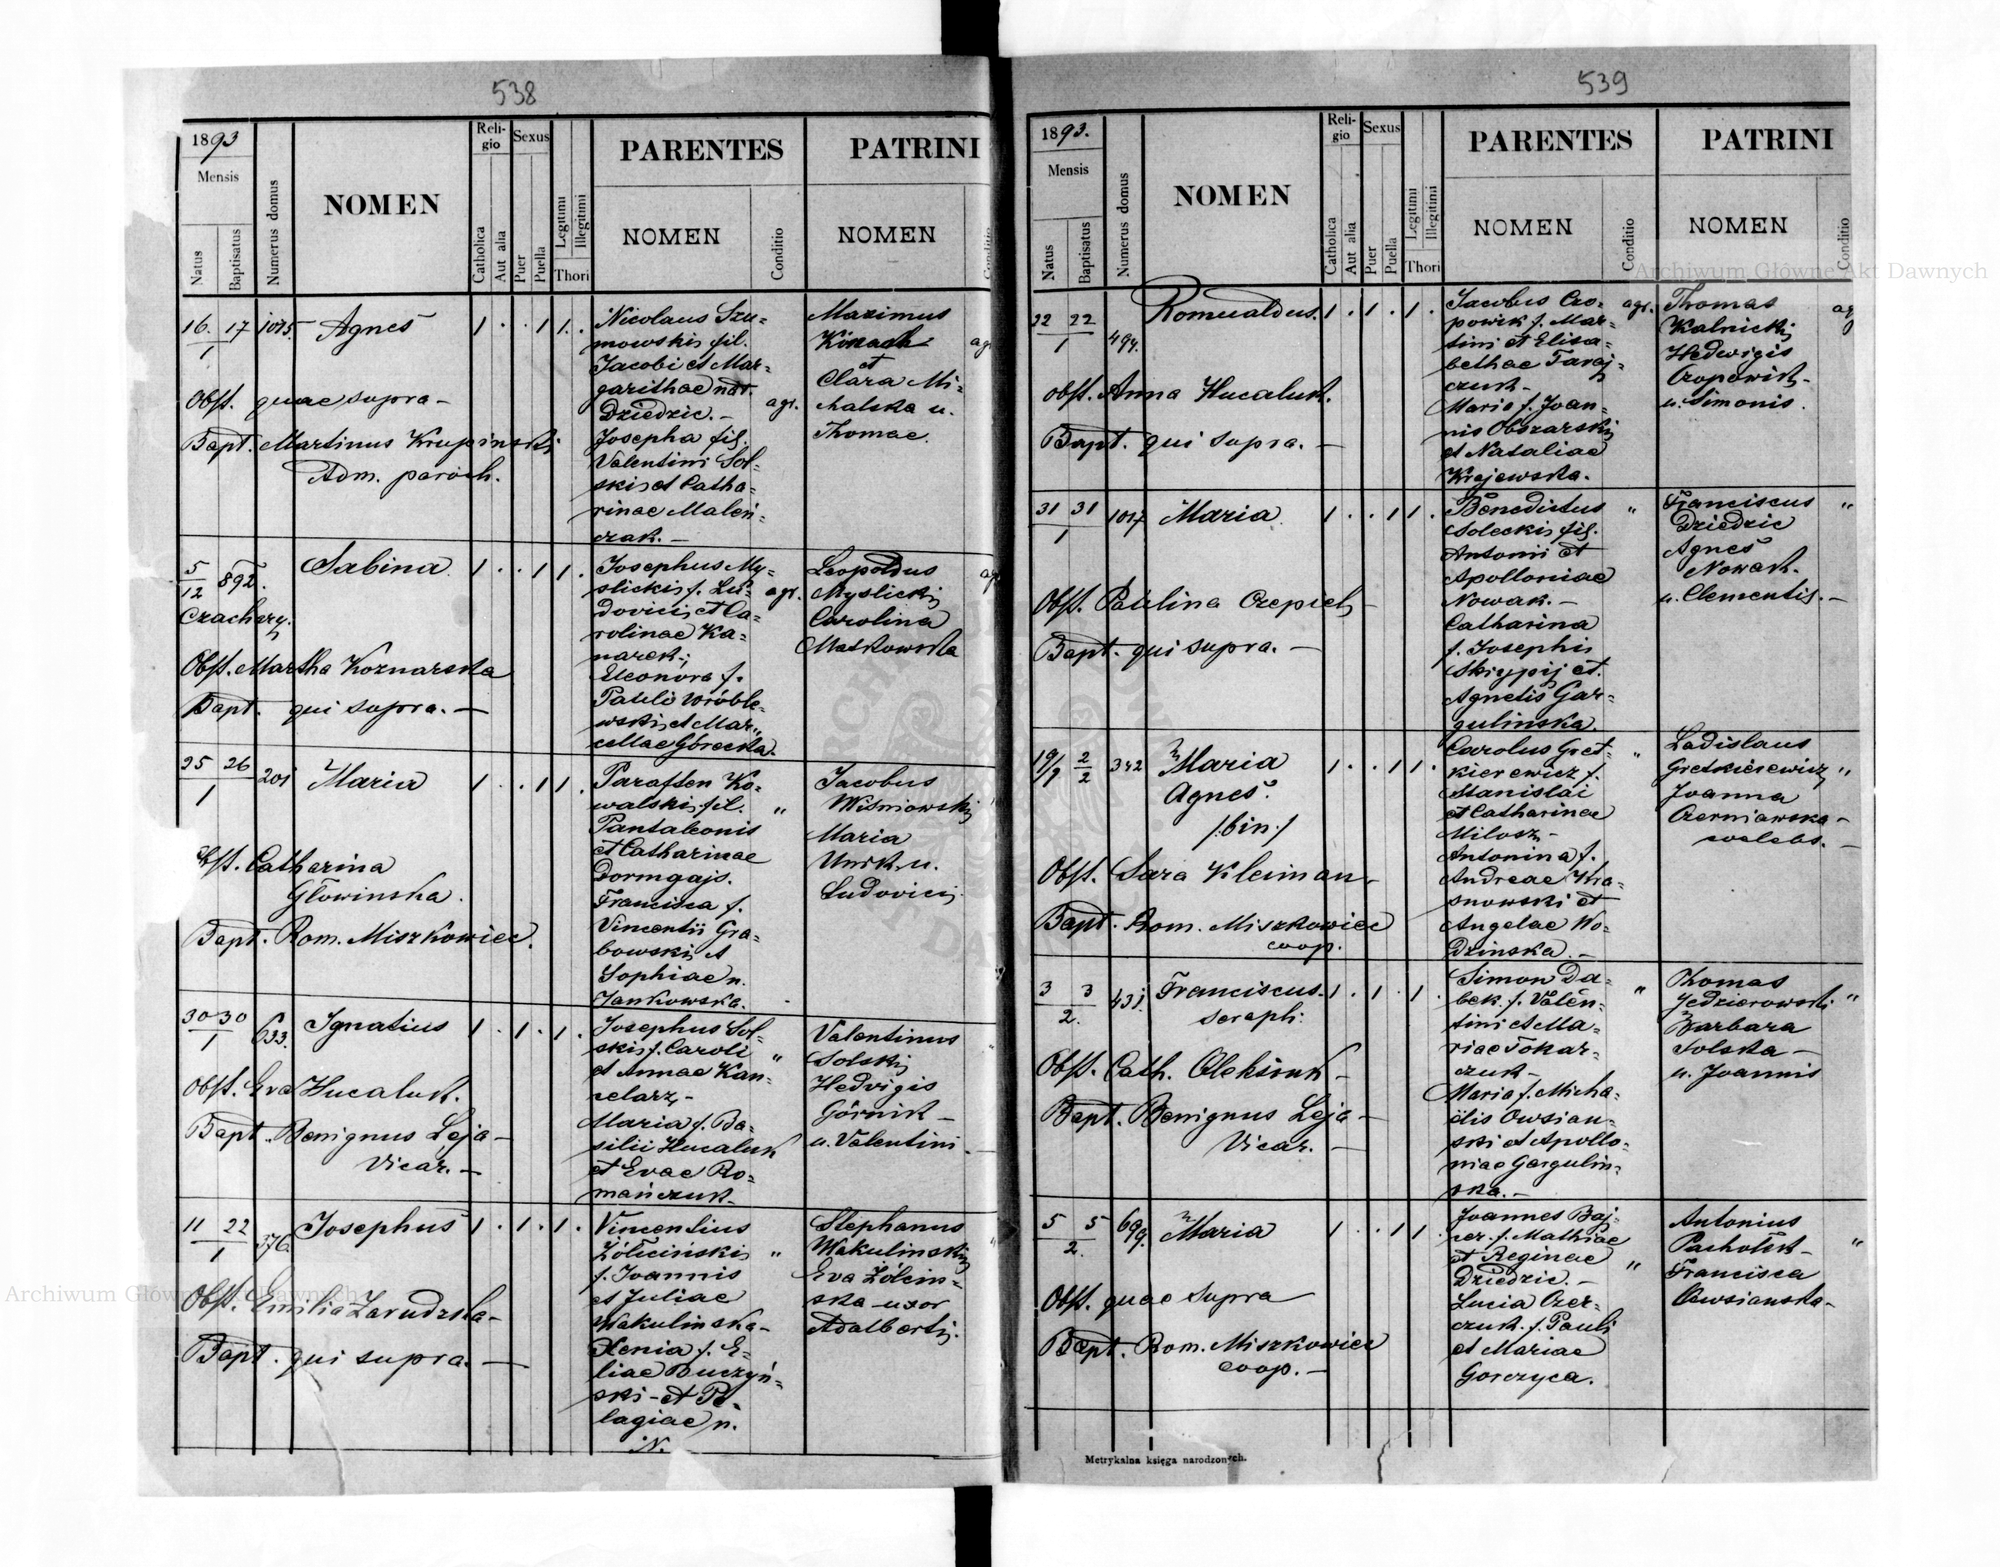 538
1893
Mensis
Natus
Baptisatus
Numerus domus
NOMEN
Reli-
gio
Catholica
Aut alia
Sexus
Puer
Puella
Legitimi
Illegitimi
Thori
PARENTES
NOMEN
Conditio
PATRINI
NOMEN
Conditio
16. 17 1075. Agnes 1 . . 1 1 .
1
Obst. quae supra -
Bapt. Martinus Krupinski
Adm. paroch.
Nicolaus Szu-
mowski fil.
Jacobi et Mar-
garithae nat.
Dziedzic. - agr.
Josepha fil.
Valentini Sol-
ski et Catha-
rinae Maleń-
czak. -
Maximus
Kinach
et
Clara Mi-
chalska u.
Thomae.
5
12 892. Sabina 1 . . 1 1 .
Czachary.
Obst. Martha Koznarska
Bapt. qui supra. -
Josephus My-
slicki f. Lu- agr.
dovici et Ca-
rolinae Ka-
narek;
Eleonora f.
Pauli Wróble-
wski et Mar-
cellae Górecka.
Leopoldus
Myslicki
Carolina
Matkowska
25 26 201 Maria 1 . . 1 1 .
1
Obst. Catharina
Głowinska.
Bapt. Rom. Miszkowiec.
Paraften Ko-
walski fil. "
Pantaleonis
et Catharinae
Dormgajs.
Francisca f.
Vincentii Gra-
bowski et
Sophiae n.
Jankowska.
Jacobus
Wiśniowski
Maria
u.
Ludovici.
30 30 633. Ignatius 1 . 1 . 1 .
1
Obst. Eva Hucaluk.
Bapt. Benignus Leja -
Vicar. -
Josephus Sol-
ski f. Caroli "
et Annae Kan-
celarz -
Maria f. Ba-
silii Hucaluk
et Evae Ro-
mańczuk -
Valentinus
Solski
Hedvigis
Górnik -
u. Valentini -
11 22 376. Josephus 1 . 1 . 1 .
1
Obst. Emilia Zarudzka -
Bapt. qui supra. -
Vincentius
Żółciński "
f. Joannis
et Juliae
Wakulinska -
Xenia f. E-
liae Buczyń-
ski - et Pe-
lagiae n.
N.
Stephanus
Wakulinski
Eva Żółcin-
ska - uxor
Adalberti.
539
1893.
Mensis
Natus
Baptisatus
Numerus domus
NOMEN
Reli-
gio
Catholica
Aut alia
Sexus
Puer
Puella
Legitimi
Illegitimi
Thori
PARENTES
NOMEN
Conditio
PATRINI
NOMEN
Conditio
22 22 494. Romualdus. 1 . 1 . 1 .
1
Obst. Anna Hucaluk.
Bapt. qui supra. -
Jacobus Czo- agr.
powik f. Mar-
tini et Elisa-
bethae Taraj-
czuk -
Maria f. Joan-
nis Obszarski
et Nataliae
Krajewska.
Thomas
Kalnicki
Hedwigis
Czopowik -
u. Simonis.
31 31 1017 Maria 1 . . 1 1 .
1
Obst. Paulina Czepiel -
Bapt. qui supra. -
Benedictus "
Solecki fil.
Antonii et
Apolloniae
Nowak. -
Catharina
f. Josephi
Skrypij et
Agnetis Gar-
gulinska.
Franciscus "
Dziedzic
Agnes
Nowak.
u. Clementis. -
19/2 2/2 342 Maria 1 . . 1 1 .
Agnes.
/:bin:/
Obst. Sara Kleiman -
Bapt. Rom. Miszkowiec
coop.
Carolus Gret- "
kierewicz f.
Stanislai
et Catharinae
Milosz -
Antonina f.
Andreae Kra-
snowski et
Angelae Wo-
dzinska. -
Ladislaus
Gretkierewicz "
Joanna
Czerniawska -
coelebs. -
3 3 431. Franciscus. 1 . 1 . 1 .
2. seraph:
Obst. Cath. Oleksiuk -
Bapt. Benignus Leja -
Vicar. -
Simon Da- "
bek. f. Valen-
tini et Ma-
riae Tokar-
czuk -
Maria f. Micha-
ëlis Owsian-
ski et Apollo-
niae Gargulin-
ska. -
Thomas
Jedzierowski "
Barbara
Solska -
u. Joannis
5 5 699. Maria 1 . . 1 1 .
2.
Obst. quae supra
Bapt. Rom. Miszkowiec
coop. -
Joannes Baj-
cer. f. Mathiae
et Reginae "
Dziedzic. -
Lucia Czer-
czuk. f. Pauli
et Mariae
Gorczyca.
Antonius
Pachołek - "
Francisca
Owsianska -
Metrykalna księga narodzonych.
Archiwum Główne Akt Dawnych
Archiwum Główne Akt Dawnych